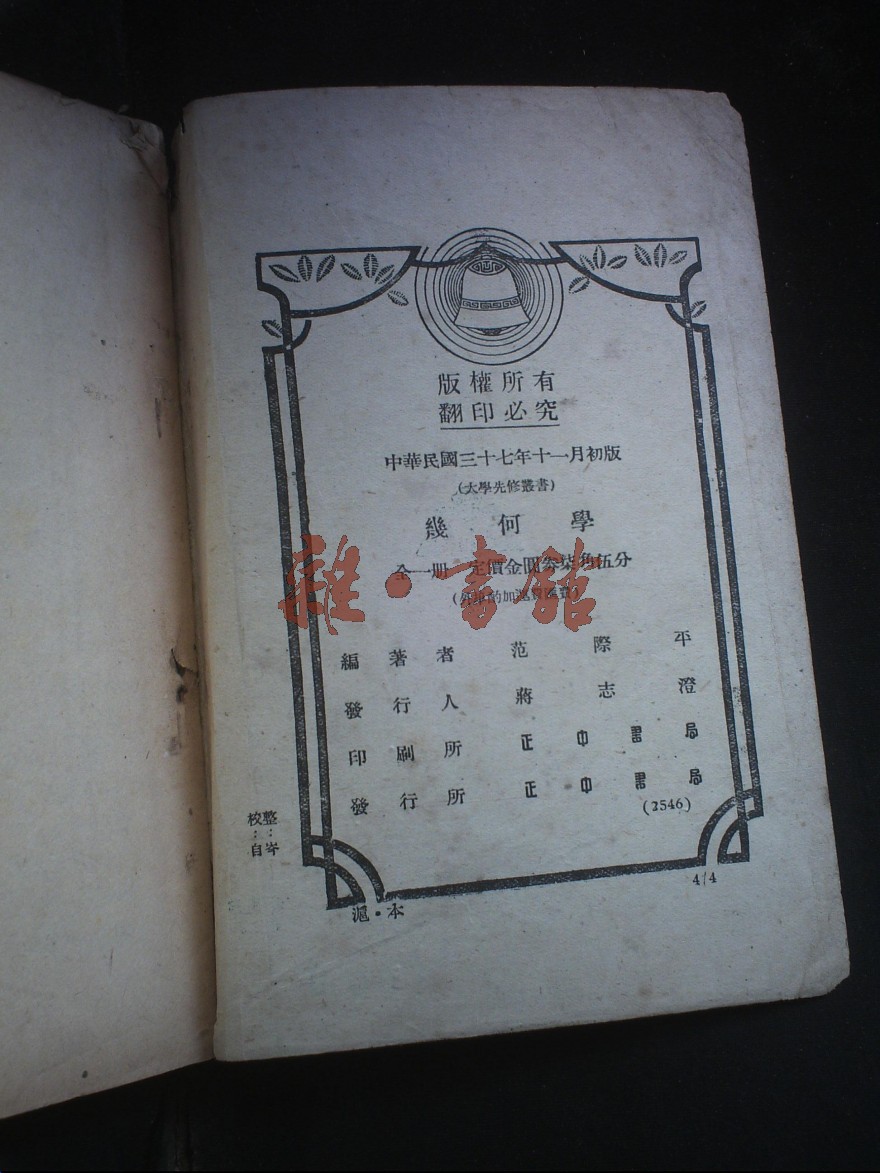 版權所有
翻印必究
中華民國三十七年十一月初版
(大學先修叢書)
幾何學
全一册 定價金圓叁柒角伍分
(外埠酌加運費匯費)
雜·書館
編著者 范際平
發行人 蔣志澄
印刷所 正中書局
發行所 正中書局
(2546)
校整
：：
自岑
滬·本
4/4